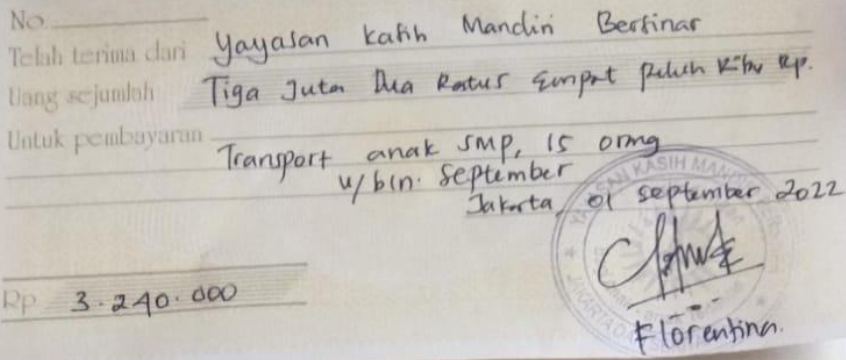 No.
Telah terima dari Yayasan Kasih Mandiri Bersinar
Uang sejumlah Tiga Juta Dua Ratus Empat Puluh Ribu Rp.
Untuk pembayaran Transport anak SMP, 15 orang
u/bln. September
Jakarta, 01 September 2022
YAYASAN KASIH MAN
JAKARTA
Rp 3.240.000
Florentina.